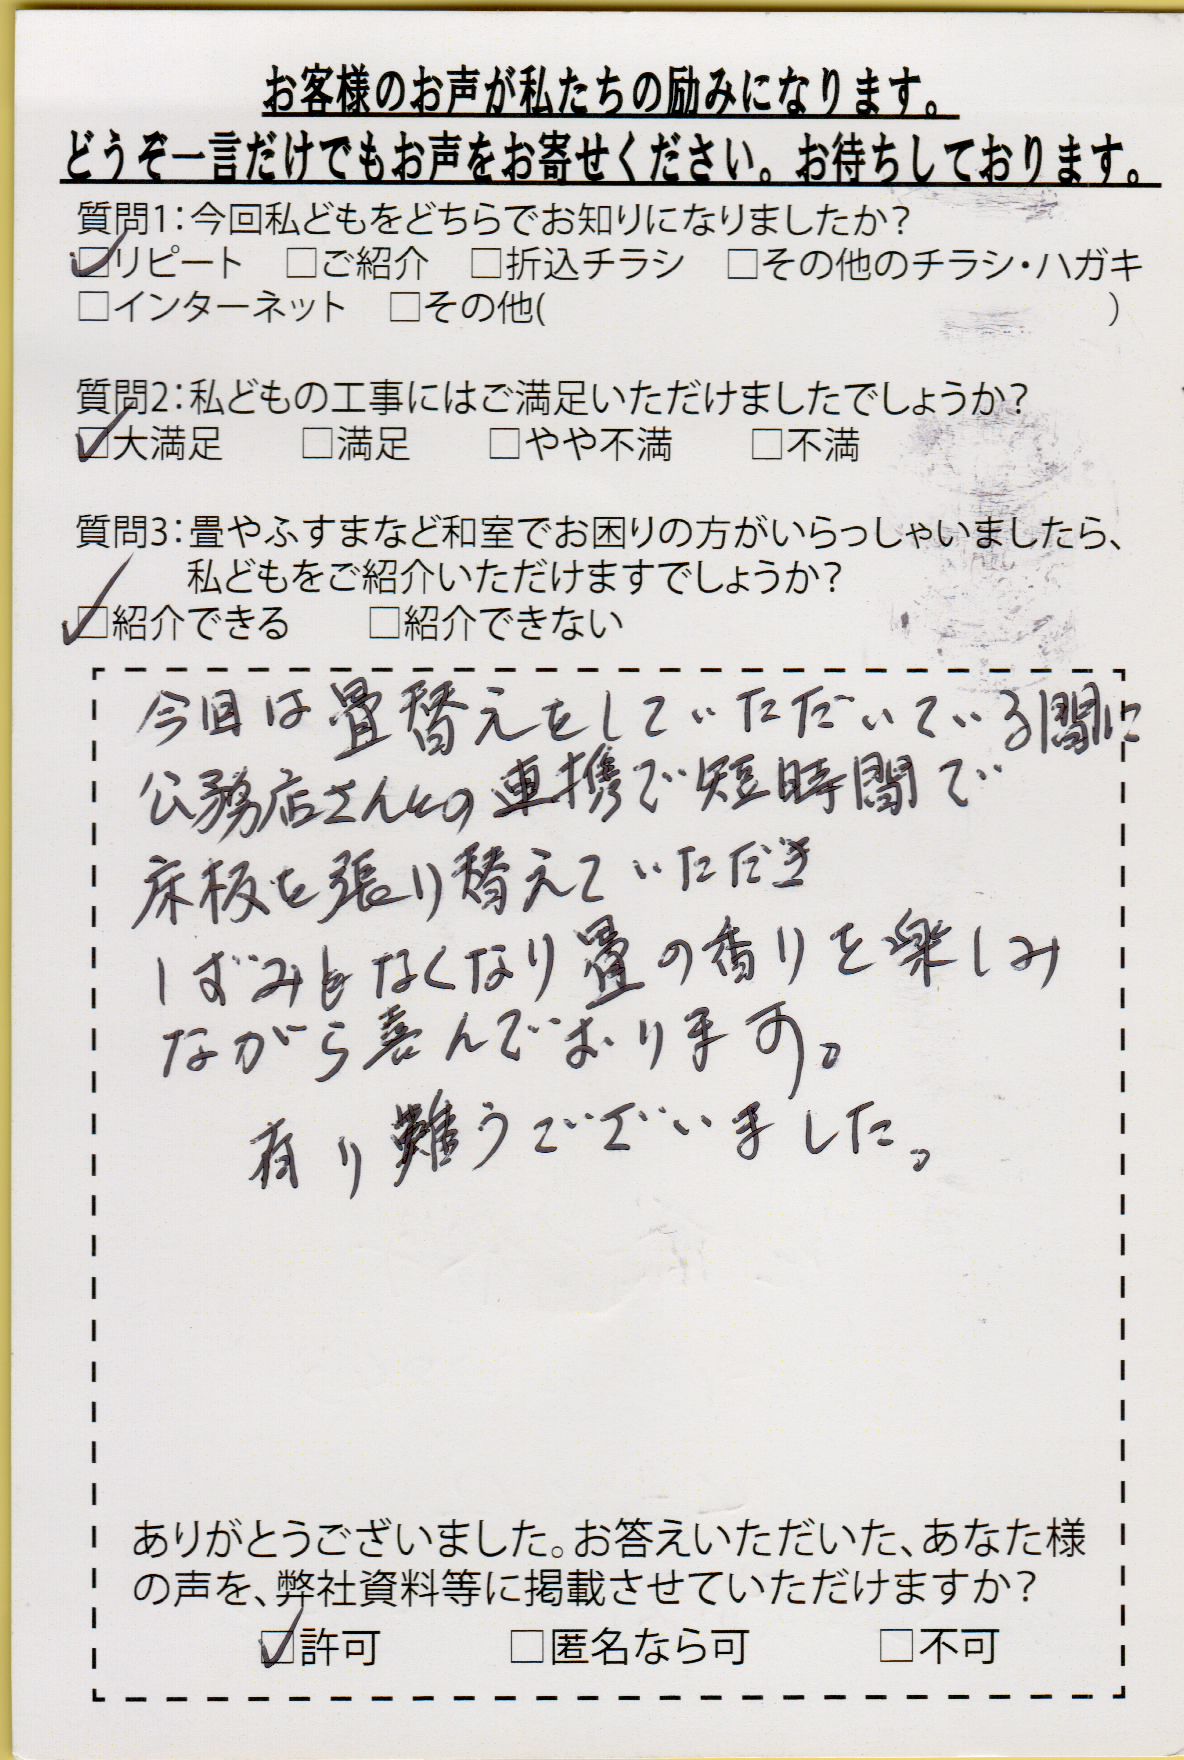 お客様のお声が私たちの励みになります。
どうぞ一言だけでもお声をお寄せください。お待ちしております。
質問1：今回私どもをどちらでお知りになりましたか？
☑リピート　□ご紹介　□折込チラシ　□その他のチラシ・ハガキ
□インターネット　□その他(　　　　　　　　　　)
質問2：私どもの工事にはご満足いただけましたでしょうか？
☑大満足　□満足　□やや不満　□不満
質問3：畳やふすまなど和室でお困りの方がいらっしゃいましたら、
私どもをご紹介いただけますでしょうか？
☑紹介できる　□紹介できない
今回は畳替えをしていただいている間に
公務店さんとの連携で短時間で
床板を張り替えていただき
しずみもなくなり畳の香りを楽しみ
ながら喜んでおります。
有り難うございました。
ありがとうございました。お答えいただいた、あなた様
の声を、弊社資料等に掲載させていただけますか？
☑許可　□匿名なら可　□不可